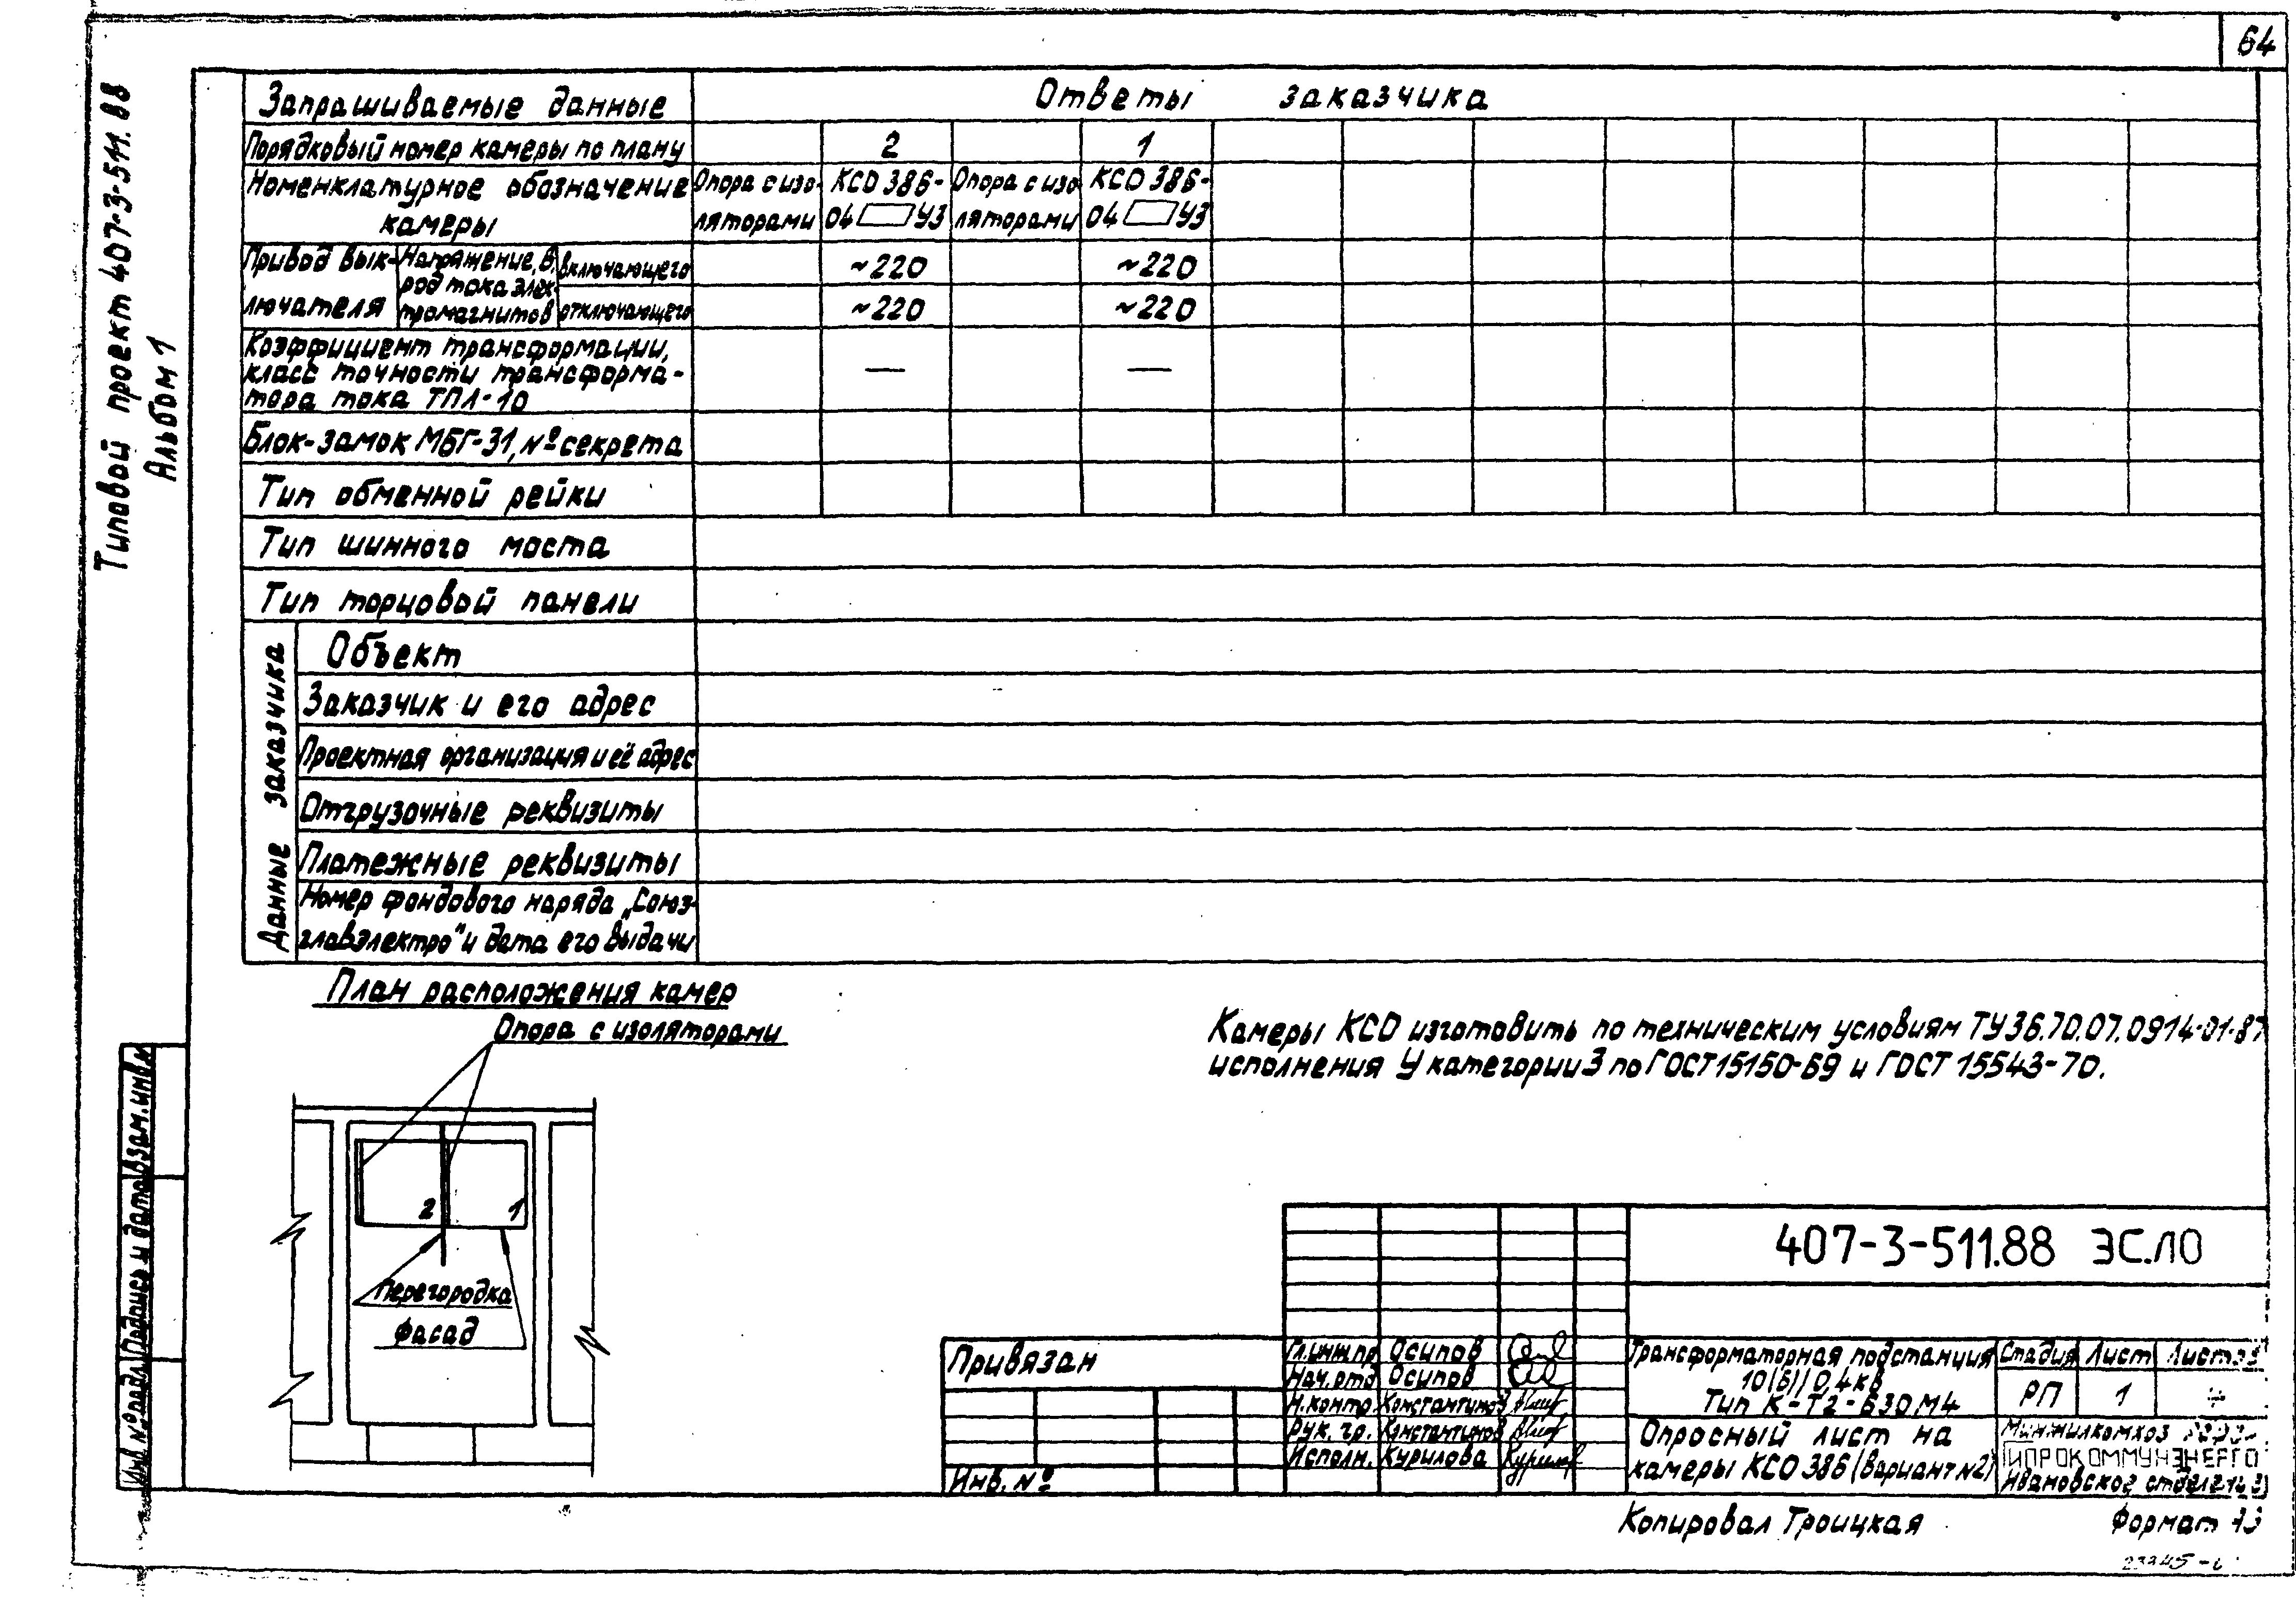 64
Типовой проект 407-3-511.88
Альбом 1
Запрашиваемые данные
Ответы заказчика
Порядковый номер камеры по плану
2
1
Номенклатурное обозначение
камеры
Опора с изо-
ляторами
КСО 386-
04 У3
Опора с изо-
ляторами
КСО 386-
04 У3
Привод вык-
лючателя
Напряжение, В,
род тока элек-
тромагнитов
включающего
~220
~220
отключающего
~220
~220
Коэффициент трансформации,
класс точности трансформа-
тора тока ТПЛ-10
—
—
Блок-замок МБГ-31, № секрета
Тип обменной рейки
Тип шинного моста
Тип торцовой панели
Данные заказчика
Объект
Заказчик и его адрес
Проектная организация и её адрес
Отгрузочные реквизиты
Платежные реквизиты
Номер фондового наряда „Союз-
главэлектро" и дата его выдачи
План расположения камер
Опора с изоляторами
2
1
Перегородка
Фасад
Камеры КСО изготовить по техническим условиям ТУ36.70.07.0914-01-87
исполнения У категории 3 по ГОСТ 15150-69 и ГОСТ 15543-70.
Взам. инв. №
Подпись и дата
Инв. № подл.
407-3-511.88 ЭС.ЛО
Привязан
Инв. №
Гл.инж.пр. Осипов
Нач.отд. Осипов
Н.контр. Константинов
Рук. гр. Константинов
Исполн. Курилова
Трансформаторная подстанция
10(6)/0,4кВ
Тип К-Т2-630 М4
Стадия Лист Листов
РП 1
Опросный лист на
камеры КСО 386 (вариант №2)
Минжилкомхоз
ГИПРОКОММУНЭНЕРГО
Ивановское отделение
Копировал Троицкая
Формат А3